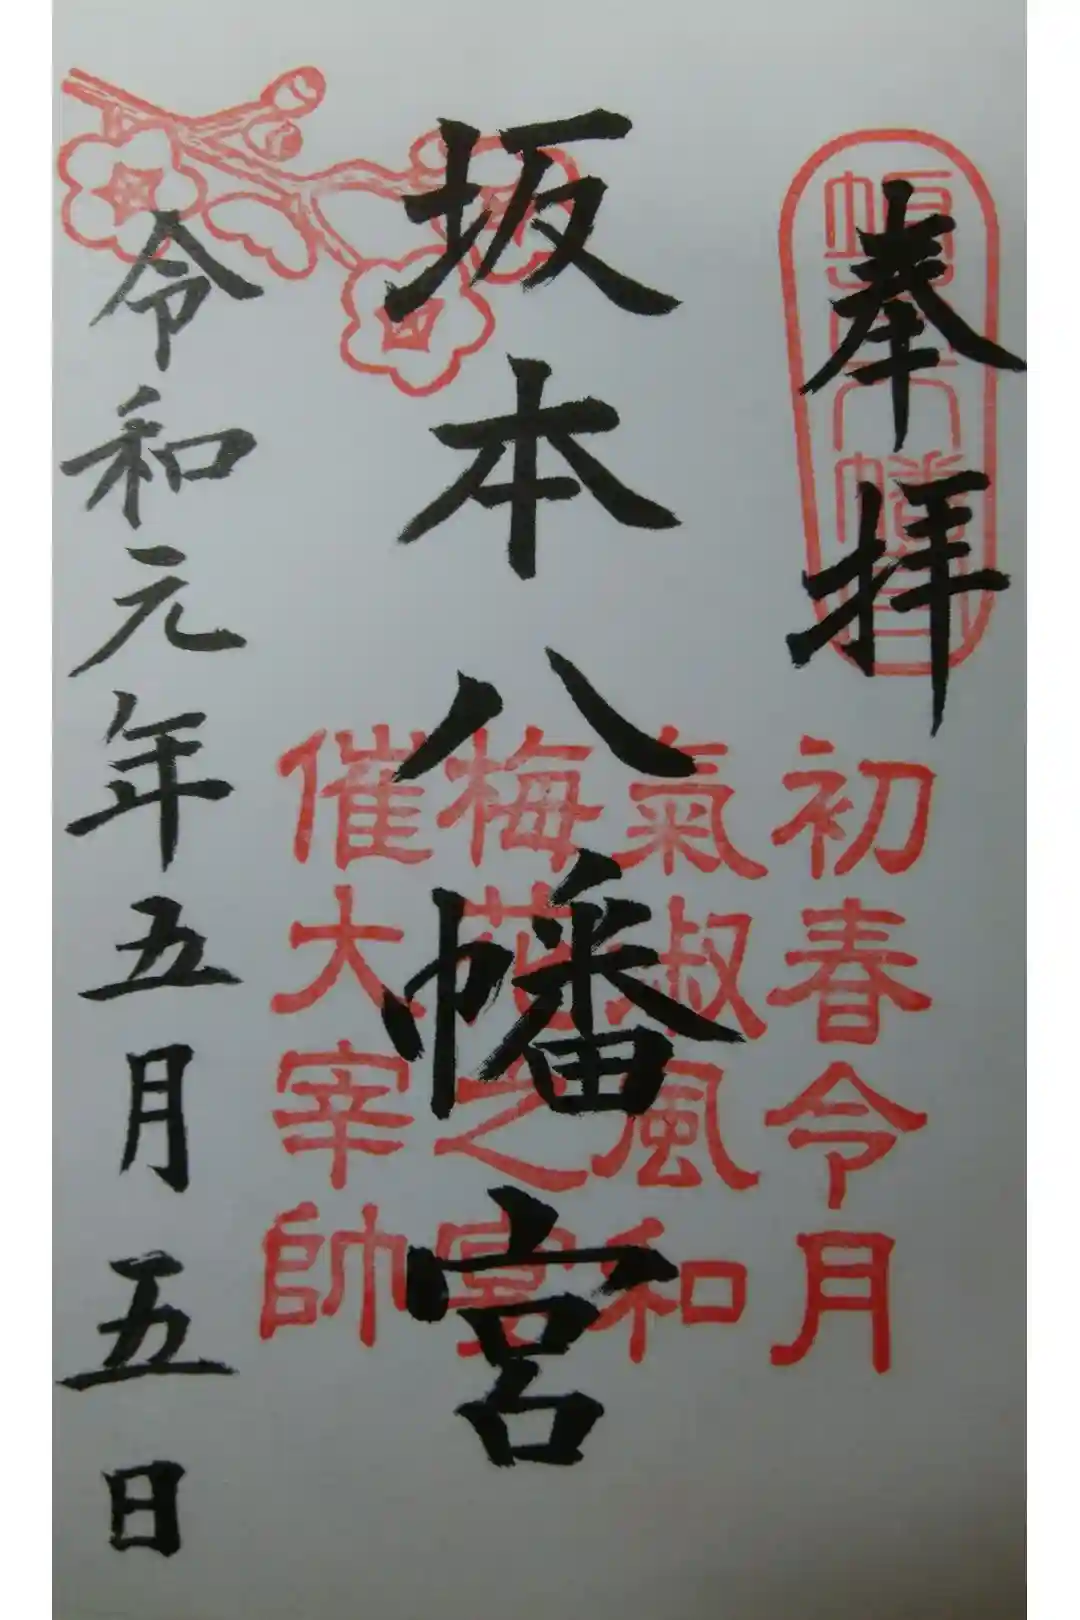 奉拝
初春令月
氣淑風和
坂本八幡宮
梅花之宴
催大宰帥
令和元年五月五日